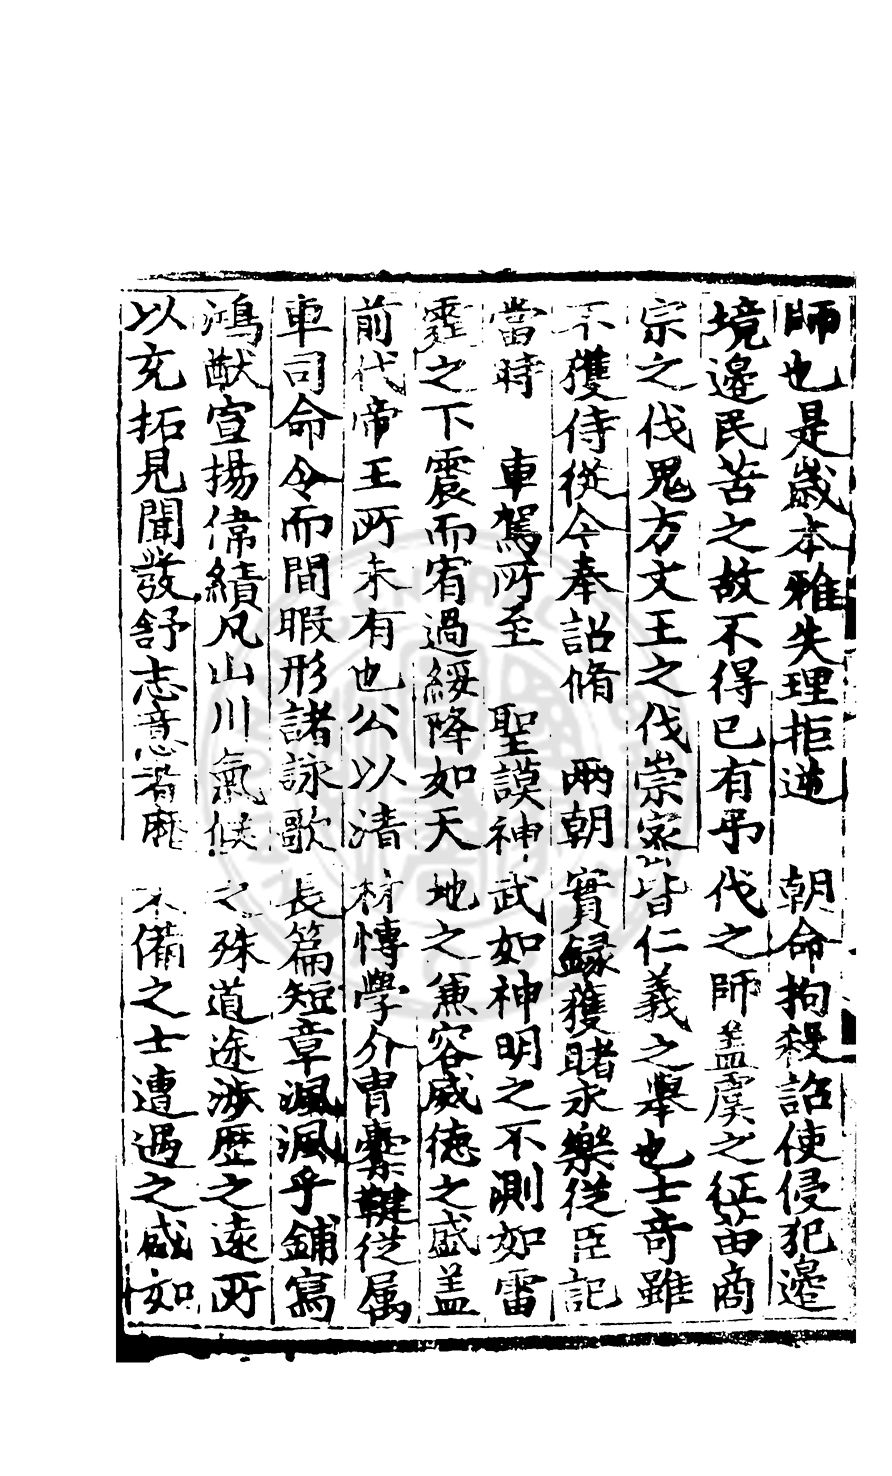 師也是歲本雅失理拒逆　朝命拘殺詔使侵犯邊
境邊民苦之故不得已有弔伐之師盖虞之征苗商
宗之伐鬼方文王之伐崇密皆仁義之舉也士奇雖
不獲侍從今奉詔脩　兩朝實録獲睹永樂從臣記
當時　車駕所至　聖謨神武如神明之不測如雷
霆之下震而宥過綏降如天地之兼容威德之盛盖
前代帝王所未有也公以清材愽學介胄櫜鞬從属
車司命令而間暇形諸詠歌長篇短章渢渢乎鋪寫
鴻猷宣揚偉績凡山川氣候之殊道途渉歴之遠所
以充拓見聞發舒志意者靡不備之士遭遇之盛如